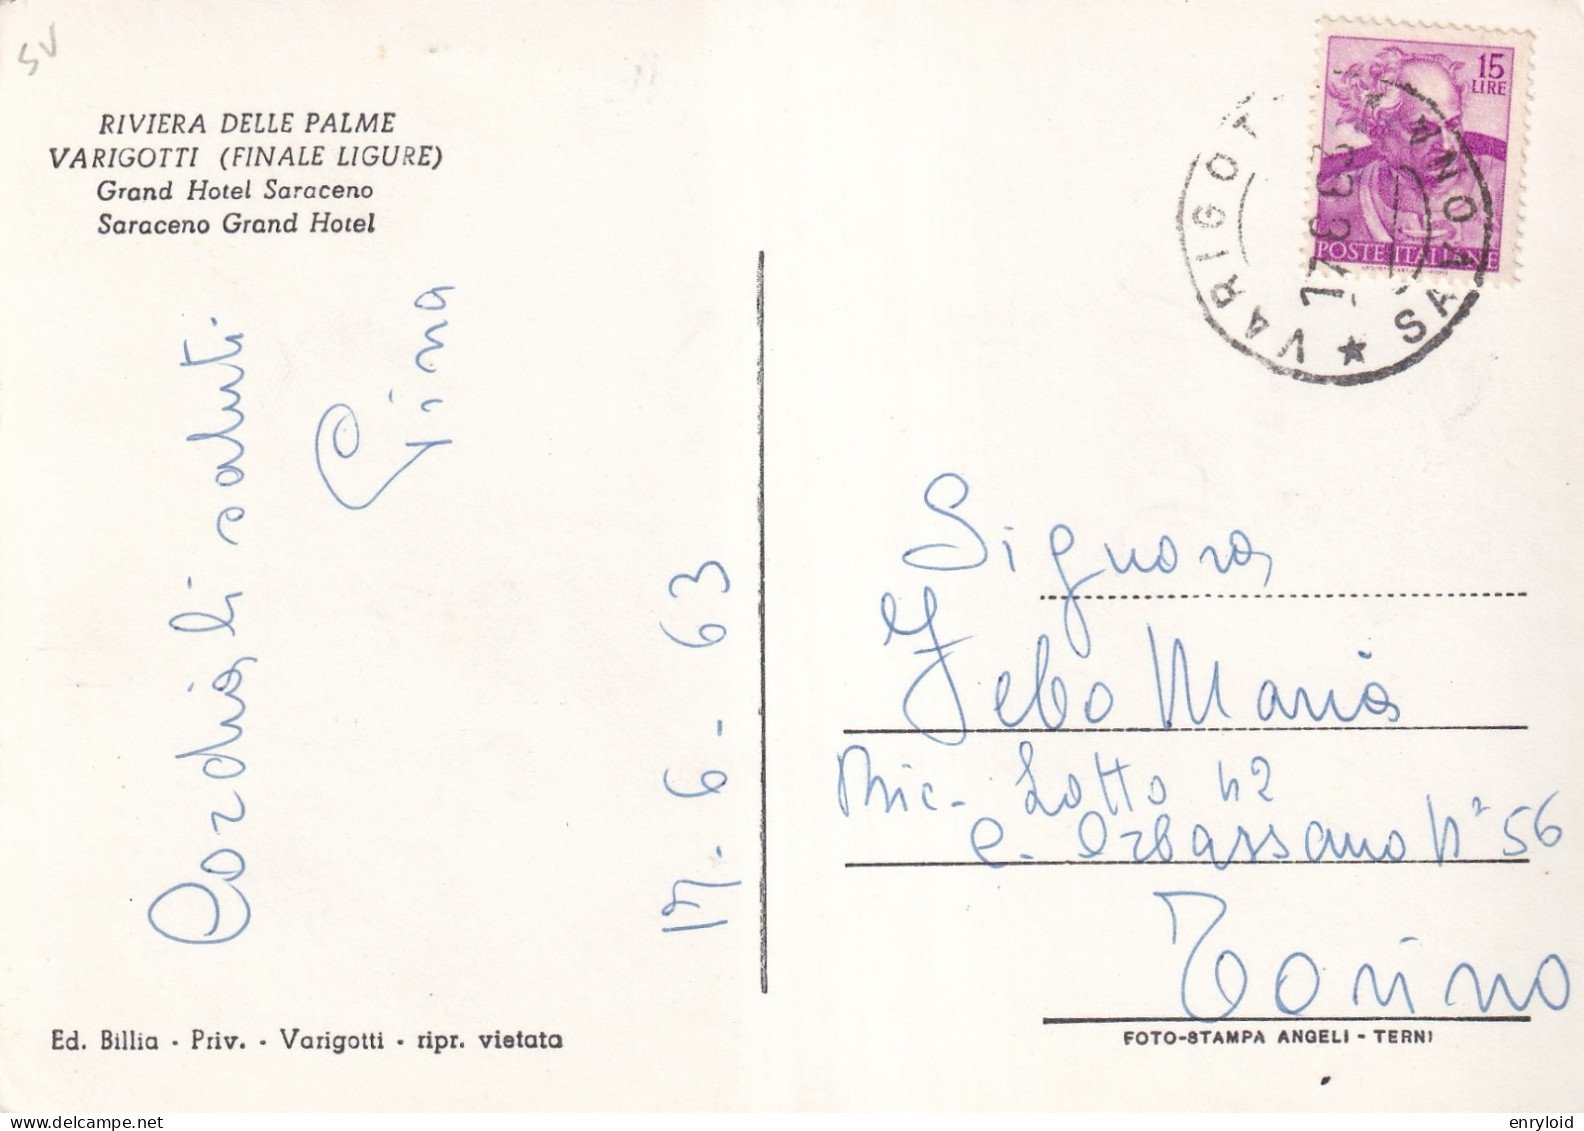 SV
RIVIERA DELLE PALME
VARIGOTTI (FINALE LIGURE)
Grand Hotel Saraceno
Saraceno Grand Hotel
Cordiali saluti
Gina
17. 6 - 63
15
LIRE
POSTE ITALIANE
VARIGOT
SAVONA
Signora
Jebo Maria
Mic. Lotto 42
C. Orbassano N° 56
Torino
Ed. Billia - Priv. - Varigotti - ripr. vietata
FOTO-STAMPA ANGELI - TERNI
enryloid
delcampe.net